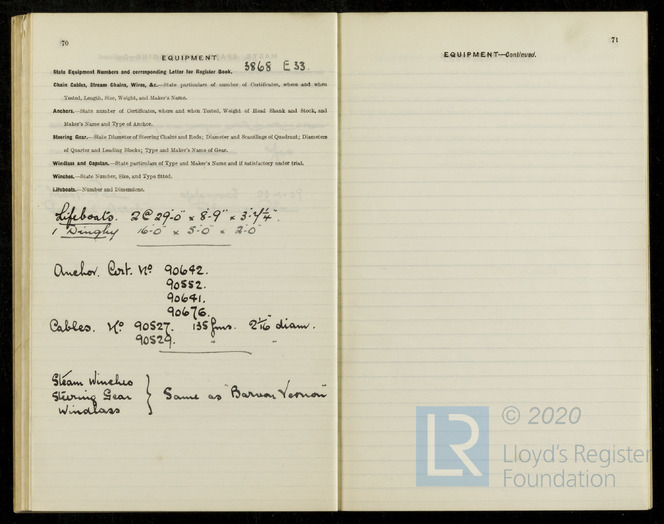 70
EQUIPMENT.
State Equipment Numbers and corresponding Letter for Register Book. 3868 E 33.
Chain Cables, Stream Chains, Wires, &c.—State particulars of number of Certificates, where and when
Tested, Length, Size, Weight, and Maker's Name.
Anchors.—State number of Certificates, where and when Tested, Weight of Head Shank and Stock, and
Maker's Name and Type of Anchor.
Steering Gear.—State Diameter of Steering Chains and Rods; Diameter and Scantlings of Quadrant; Diameters
of Quarter and Leading Blocks; Type and Maker's Name of Gear.
Windlass and Capstan.—State particulars of Type and Maker's Name and if satisfactory under trial.
Winches.—State Number, Size, and Type fitted.
Lifeboats.—Number and Dimensions.
Lifeboats. 2 @ 29'-0" × 8'-9" × 3'-7¼".
1 Dinghy 16'-0" × 5'-0" × 2'-0"
Anchor. Cert. No 90642.
90552.
90641.
90676.
Cables. No 90527. 135 fms. 2 1/16" diam.
90529. " "
Steam Winches
Steering Gear } Same as "Baron Vernon"
Windlass
71
EQUIPMENT—Continued.
LR
© 2020
Lloyd's Register
Foundation